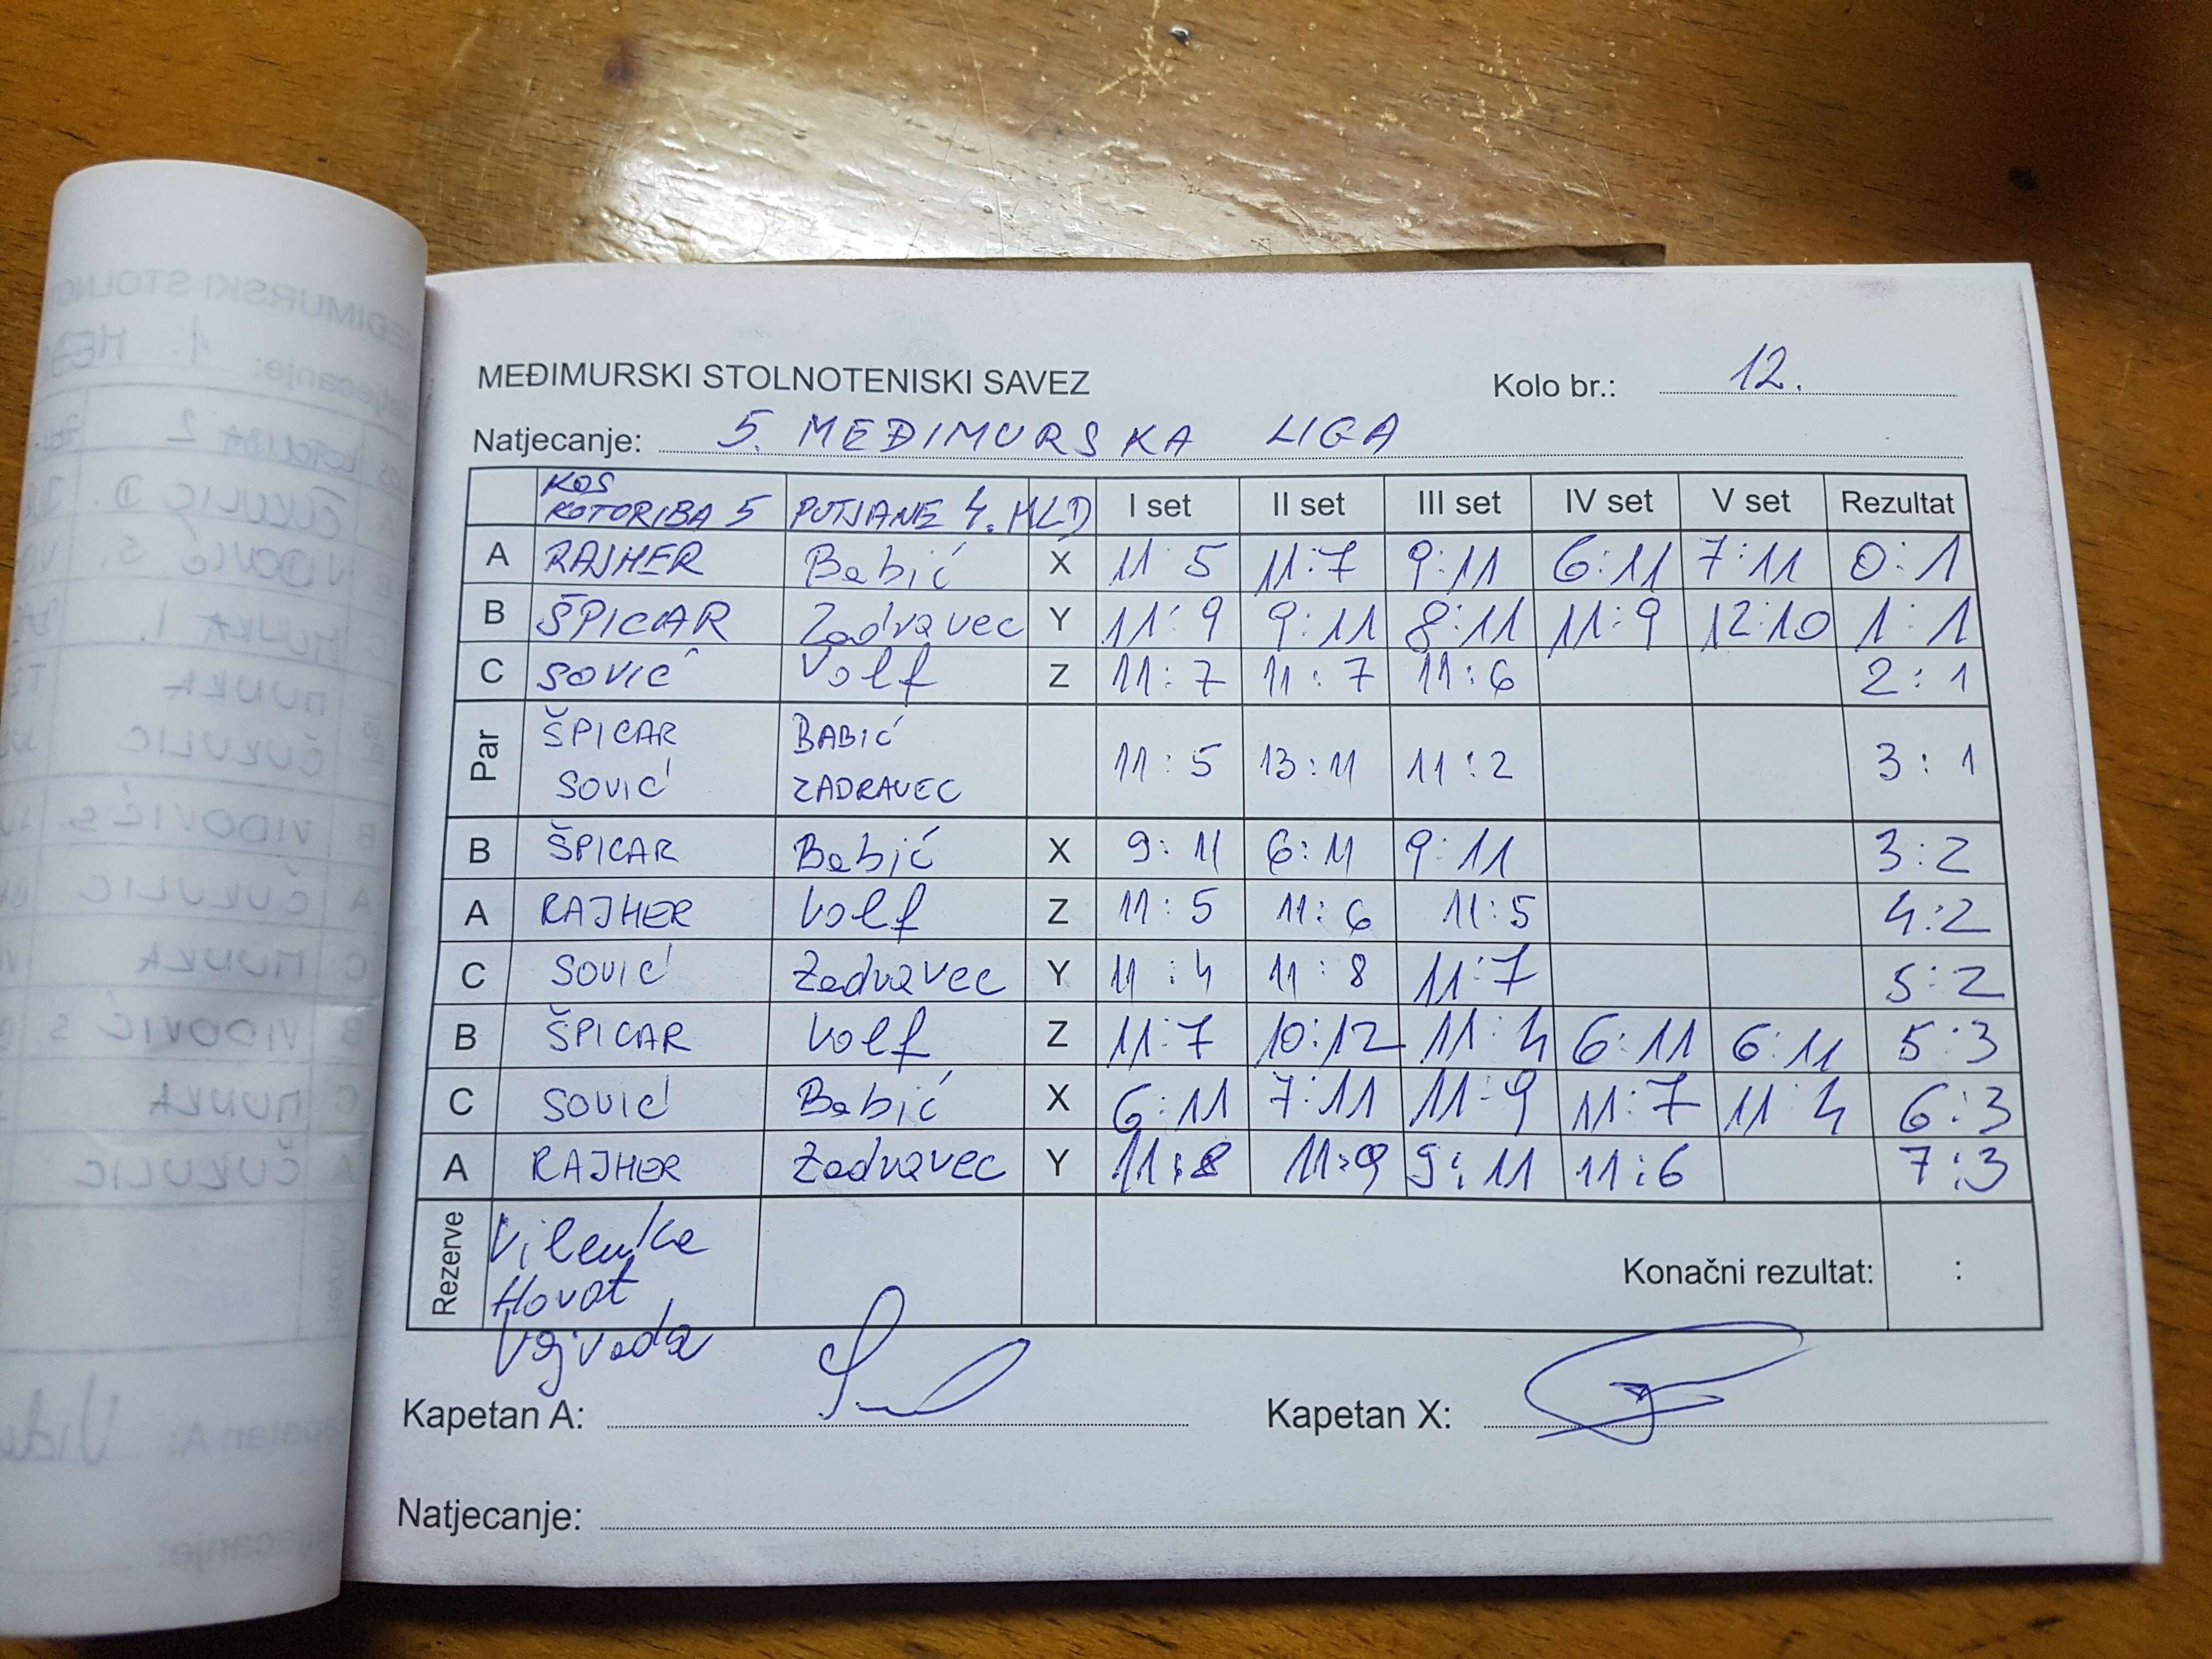 MEĐIMURSKI STOLNOTENISKI SAVEZ Kolo br.: 12.
Natjecanje: 5. MEĐIMURSKA LIGA
KOS KOTORIBA 5 PUTJANE 4. MLD I set II set III set IV set V set Rezultat
A RAJHER Babić X 11:5 11:7 9:11 6:11 7:11 0:1
B ŠPICAR Zadravec Y 11:9 9:11 8:11 11:9 12:10 1:1
C SOVIĆ Volf Z 11:7 11:7 11:6 2:1
Par ŠPICAR SOVIĆ BABIĆ ZADRAVEC 11:5 13:11 11:2 3:1
B ŠPICAR Babić X 9:11 6:11 9:11 3:2
A RAJHER Volf Z 11:5 11:6 11:5 4:2
C SOVIĆ Zadravec Y 11:4 11:8 11:7 5:2
B ŠPICAR Volf Z 11:7 10:12 11:4 6:11 6:11 5:3
C SOVIĆ Babić X 6:11 7:11 11:9 11:7 11:4 6:3
A RAJHER Zadravec Y 11:8 11:9 9:11 11:6 7:3
Rezerve Vilenka
Horvat
Vojvoda
Konačni rezultat: :
Kapetan A: Kapetan X:
Natjecanje: